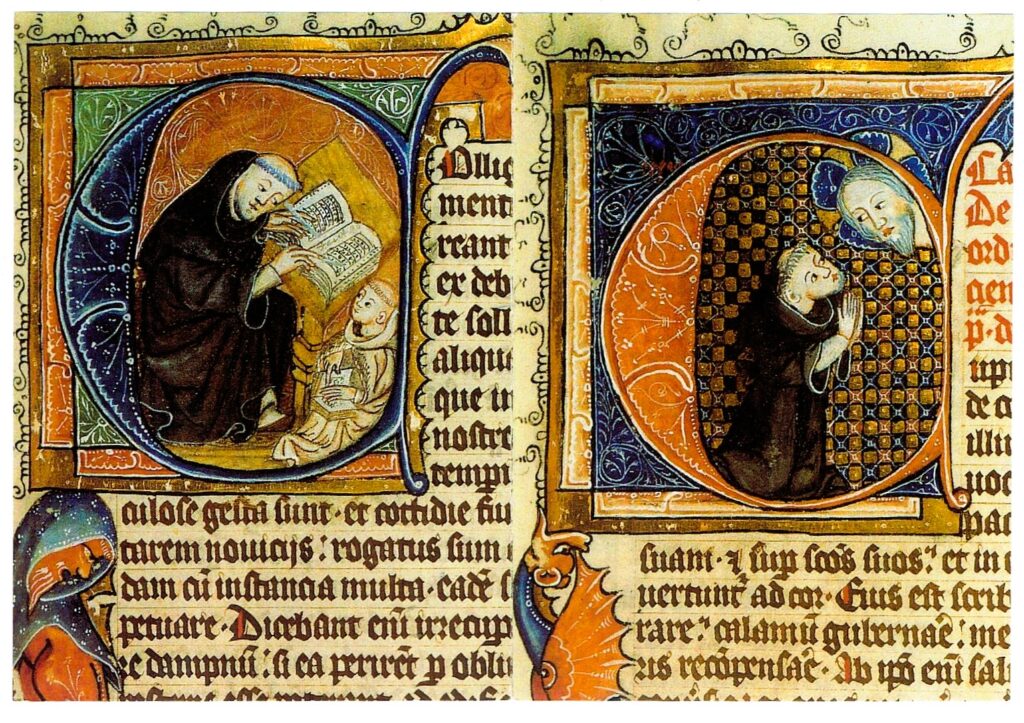 ollig
ment
reant
ex deb
te soll
aliqu
que in
nostro
temp
culose gesta sunt · et cottidie fiu
tarem nouicijs : rogatus sum
dam cū instancia multa · eadē s
petuare · Dicebant enī irrecup
le dampnū : si ea perirēt p obli
La
De
ord
gen
p · d
de c
illu
uoc
pac
suam · ⁊ sup scōs suos : et in
uertunt ad cor · Eius est scrib
rare : calamū gubernaē : me
ris recōpensaē · Ab ipō enī sal